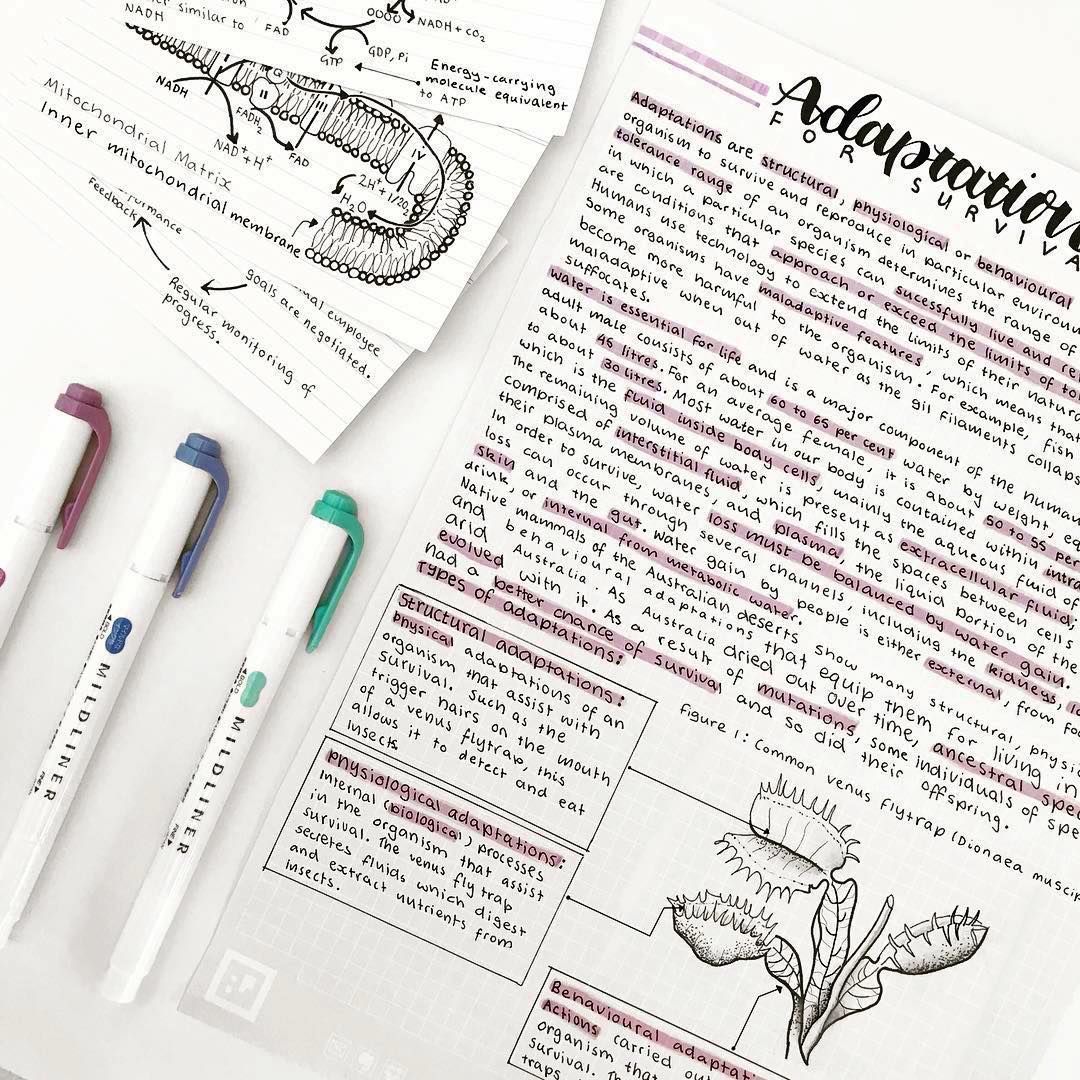 NADH
similar to
FAD
NADH + CO2
GTP
GDP, Pi
Energy-carrying
molecule equivalent
to ATP
NADH
II
III
IV
FADH2
NAD+ + H+
FAD
2H+ + 1/2O2
H2O
Mitochondrial Matrix
Inner mitochondrial membrane
Feedback
goals are negotiated.
employee
Regular monitoring of
progress.
MILDLINER
MILDLINER
Adaptation
FOR SURVIVA
Adaptations are structural, physiological or behavioural
organism to survive and reproduce in particular
tolerance range of an organism determines the range of
in which a particular species can sucessfully live and
are conditions that approach or exceed the limits of
Humans use technology to extend the limits of their
Some organisms have maladaptive features, which means that
become more harmful to the organism. For example, fish
maladaptive when out of water as the gil filaments
suffocates.
water is essential for life and is a major component of the human
adult male consists of about 60 to 65 per cent water by weight,
about 45 litres. For an average female, it is about 50 to 55 per
to about 30 litres. Most water in our body is contained within
which is the fluid inside body cells, mainly the aqueous fluid of
The remaining volume of water is present as extracellular fluid;
comprised of interstitial fluid, which fills the spaces between cells
their plasma membranes, and plasma, the liquid portion of the
In order to survive, water loss must be balanced by water gain.
loss can occur through several channels, including the kidneys,
skin and the gat. Water gain by people is either external, from
drink, or internal from metabolic water.
Native mammals of the Australian deserts show many structural,
and behavioural adaptations that equip them for living in
arid Australia. As Australia dried out over time, ancestral
evolved with it. As a result of mutations, some individuals of
had a better chance of survival and so did their offspring.
Types of adaptations:
Structural adaptations:
Physical adaptations of an
organism that assist with
survival. Such as the
trigger hairs on the mouth
of a venus flytrap, this
allows it to detect and eat
insects
Physiological adaptations:
Internal (biological) processes
in the organism that assist
survival. The venus fly trap
secretes fluids which digest
and extract nutrients from
insects.
Figure 1: Common venus flytrap (Dionaea
Behavioural
Actions carried
organism that
survival.
traps